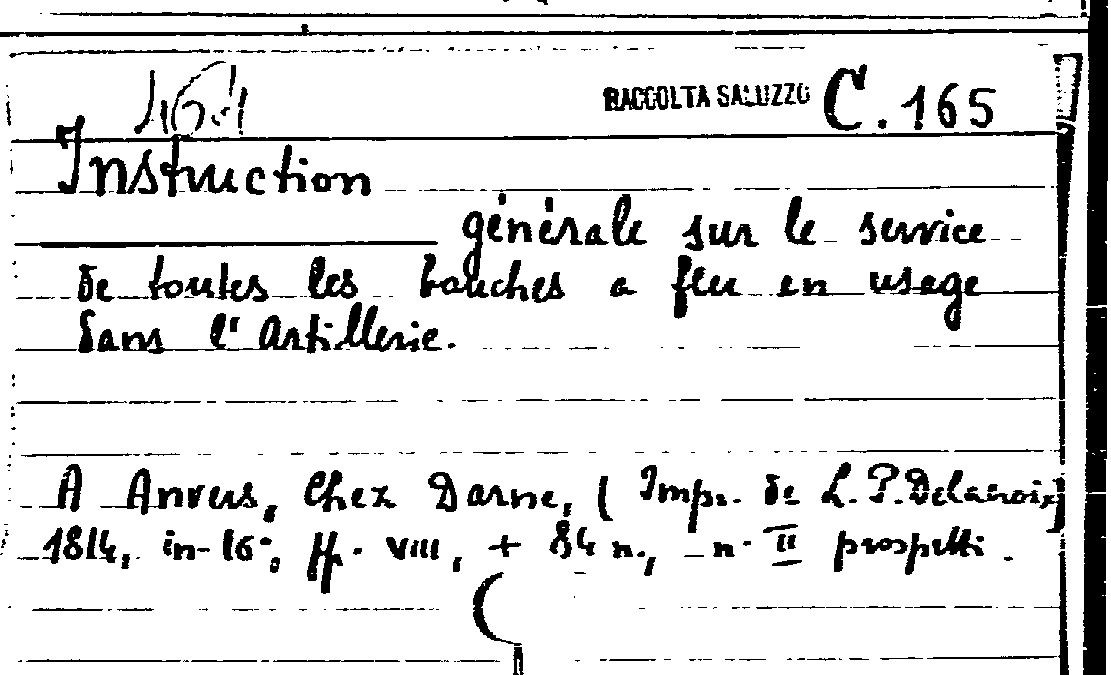 RACCOLTA SALUZZO C. 165
Instruction
générale sur le service
de toutes les bouches a feu en usage
dans l'Artillerie.
A Anvers, Chez Darne, ( Impr. de L. P. Delacroix)
1814, in-16°, ff. VIII, + 84 n., n. II prospetti.